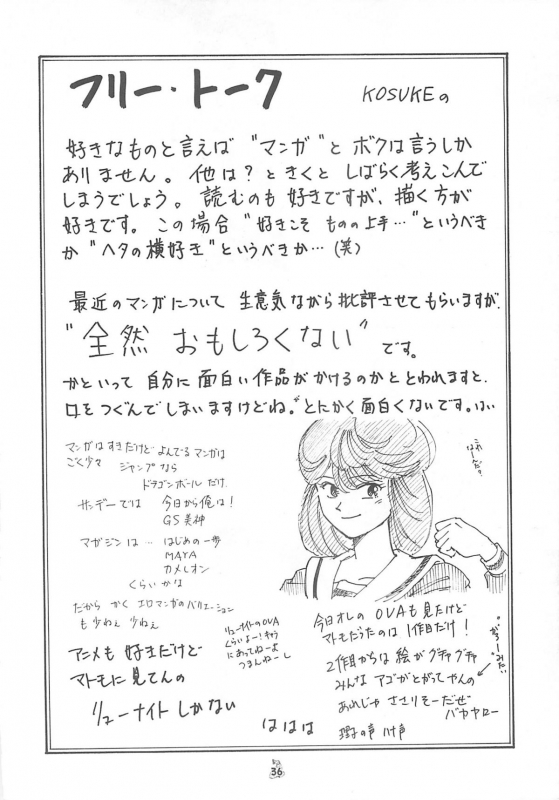 フリー・トーク
KOSUKEの
好きなものと言えば"マンガ"と ボクは言うしか
ありません。他は？ときくと しばらく考えこんで
しまうでしょう。読むのも 好きですが、描く方が
好きです。この場合 "好きこそ ものの上手…"というべき
か "ヘタの横好き"というべきか…(笑)
最近のマンガについて 生意気ながら批評させてもらいますが、
"全然 おもしろくない"です。
かといって 自分に面白い作品がかけるのかととわれますと、
口をつぐんでしまいますけどね。とにかく面白くないです。はい
マンガはすきだけど よんでるマンガは
ごく少々 ジャンプなら
ドラゴンボールだけ
サンデーでは 今日から俺は！
GS美神
マガジンは… はじめの一歩
MAYA
カメレオン
くらいかな
だから かく エロマンガのバリエーション
も少ねぇ 少ねぇ
アニメも 好きだけど
マトモに見てんの
リューナイト しかない
リューナイトのOVA
くらいよー！キャラ
にあってねーよ
つまんねーし
ははは
今日オレの OVAも見たけど
マトモだったのは 1作目だけ！
2作目からは 絵が グチャグチャ
みんな アゴがとがってやんの
あれじゃ ささりそーだぜ
バカヤロー
理子の声
36